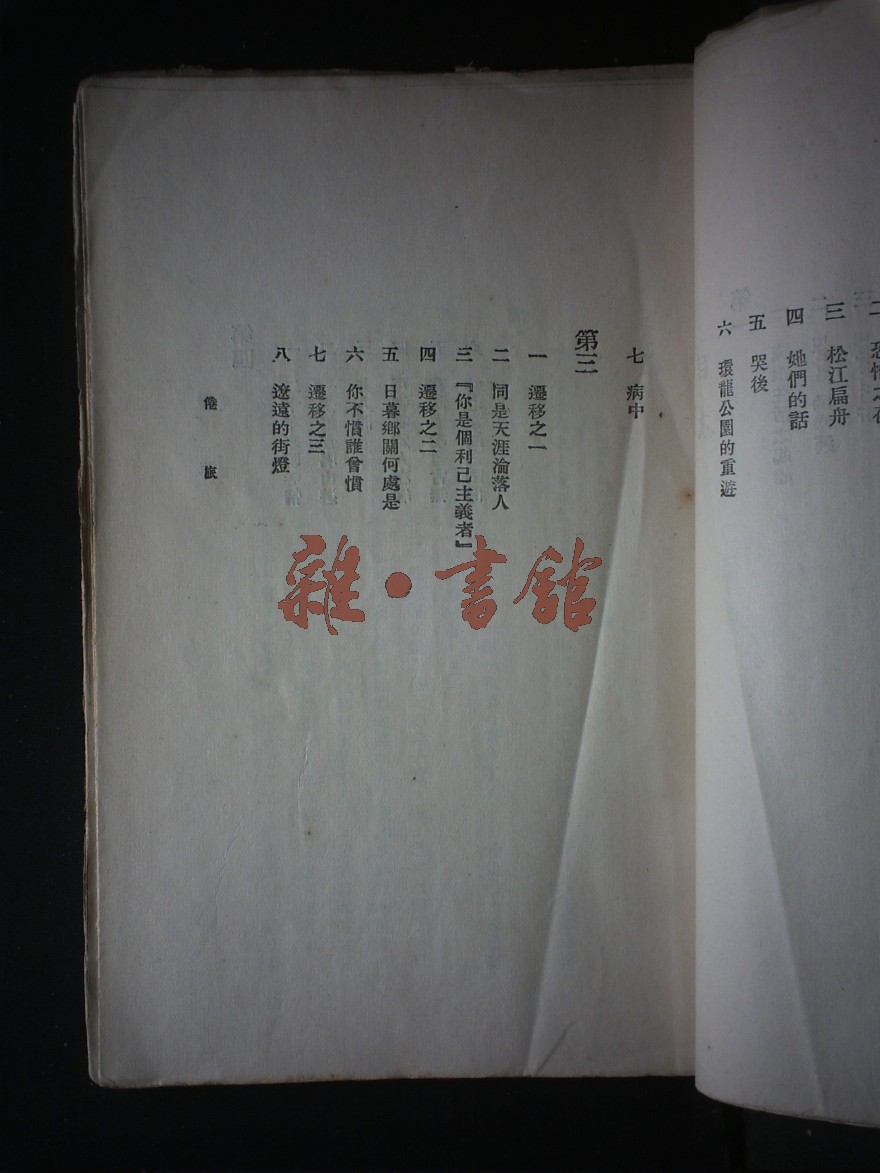 三 松江扁舟
四 她們的話
五 哭後
六 環龍公園的重遊
七 病中
第三
一 遷移之一
二 同是天涯淪落人
三 『你是個利己主義者』
四 遷移之二
五 日暮鄉關何處是
六 你不慣誰曾慣
七 遷移之三
八 遼遠的街燈
倦旅
雜·書館